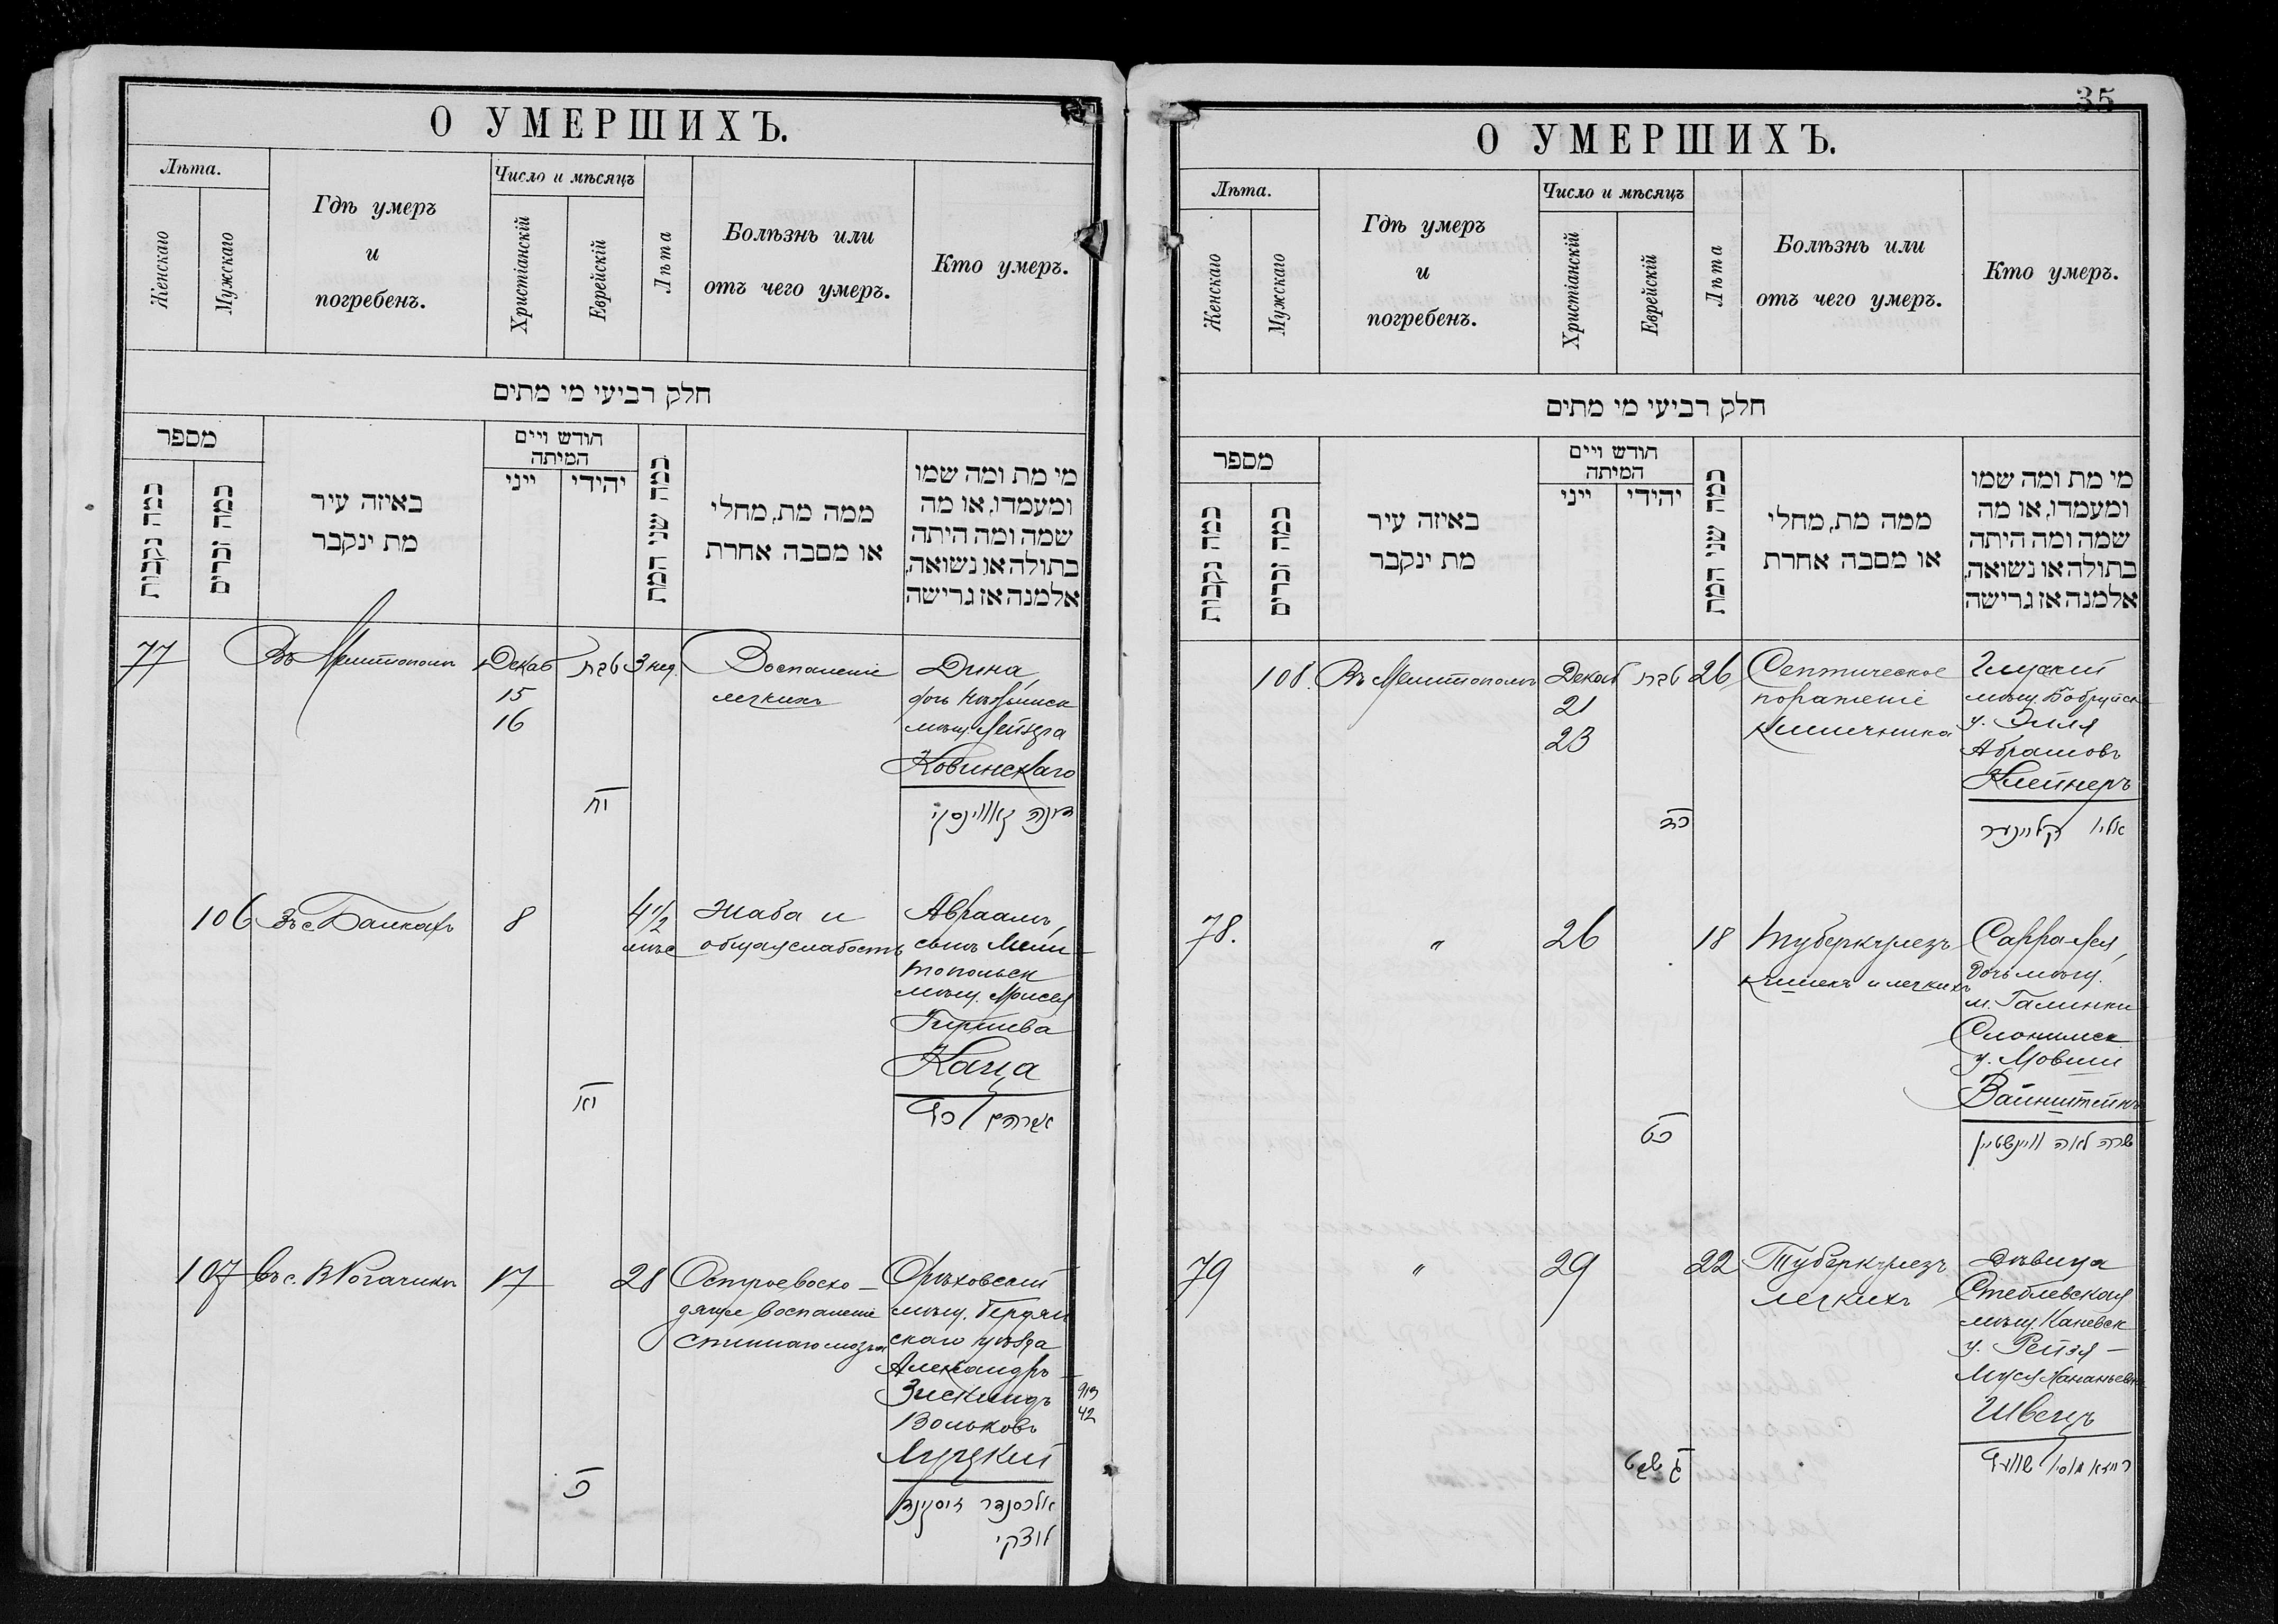 О УМЕРШИХЪ.
Лѣта.
Женскаго
Мужскаго
Гдѣ умеръ
и
погребенъ.
Число и мѣсяцъ
Христіанскій
Еврейскій
Лѣта
Болѣзнь или
отъ чего умеръ.
Кто умеръ.
חלק רביעי מי מתים
מספר
כמה נקבות
כמה זכרים
באיזה עיר
מת ינקבר
חודש ויים
המיתה
ייני
יהודי
כמה שני המת
ממה מת, מחלי
או מסבה אחרת
מי מת ומה שמו
ומעמדו, או מה
שמה ומה היתה
בתולה או נשואה,
אלמנה אז גרישה
77
Въ Мелитополѣ
Декаб
15
16
טבת
יח
3 нед.
Воспаленіе
легкихъ
Дина,
дочь
мѣщ. Лейзера
Ковинскаго
דינה קאווינסקי
106
Въ с. Балкахъ
8
יא
4 1/2
мѣс
Жаба и
общая слабость
Авраамъ,
сынъ Мели-
топольск
мѣщ. Моисея
Гиршева
Каца
אברהם כץ
107
Въ с. В Рогачикѣ
17
כ
28
Острое восхо-
дящее воспаленіе
спиннаго мозга
Орѣховскій
мѣщ. Бердян
скаго уѣзда
Александръ-
Зискиндъ
Вольковъ
Луцкій
אלכסנדר זיסקינד
לוצקי
913
42
35
О УМЕРШИХЪ.
Лѣта.
Женскаго
Мужскаго
Гдѣ умеръ
и
погребенъ.
Число и мѣсяцъ
Христіанскій
Еврейскій
Лѣта
Болѣзнь или
отъ чего умеръ.
Кто умеръ.
חלק רביעי מי מתים
מספר
כמה נקבות
כמה זכרים
באיזה עיר
מת ינקבר
חודש ויים
המיתה
ייני
יהודי
כמה שני המת
ממה מת, מחלי
או מסבה אחרת
מי מת ומה שמו
ומעמדו, או מה
שמה ומה היתה
בתולה או נשואה,
אלמנה אז גרישה
108
Въ Мелитополѣ
Декаб
21
23
טבת
כד
26
Септическое
пораженіе
кишечника
Глускій
мѣщ. Бобруйск
у. Элія
Абрамовъ
Клейнеръ
אליו קליינער
78.
"
26
כט
18
Туберкулезъ
кишекъ и легкихъ
Сарра-Лея,
дочь мѣщ.
м. Галинки
Слонимск
у. Мовши
Вайнштейнъ
שרה לאה וויינשטיין
79
"
29
ב שבט
22
Туберкулезъ
легкихъ
Дѣвица
Стеблевская
мѣщ. Каневск
у. Рейзя-
Муся Хананьевна
Швецъ
רייזא מוסי שוועץ